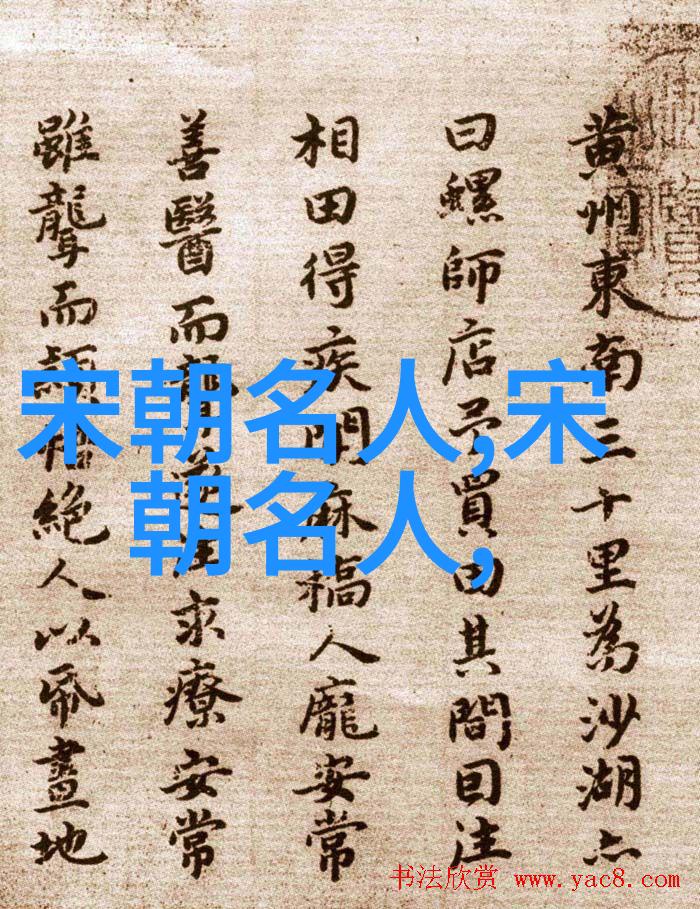 黄州東南三十里為沙湖亦
曰螺師店予買田其間因往
相田得疾聞麻橋人龐安常
善醫而聾遂往求療安常
雖聾而穎悟絶人以紙畫地
宋朝名人,宋
朝名人,
书法欣赏 www.yac8.com